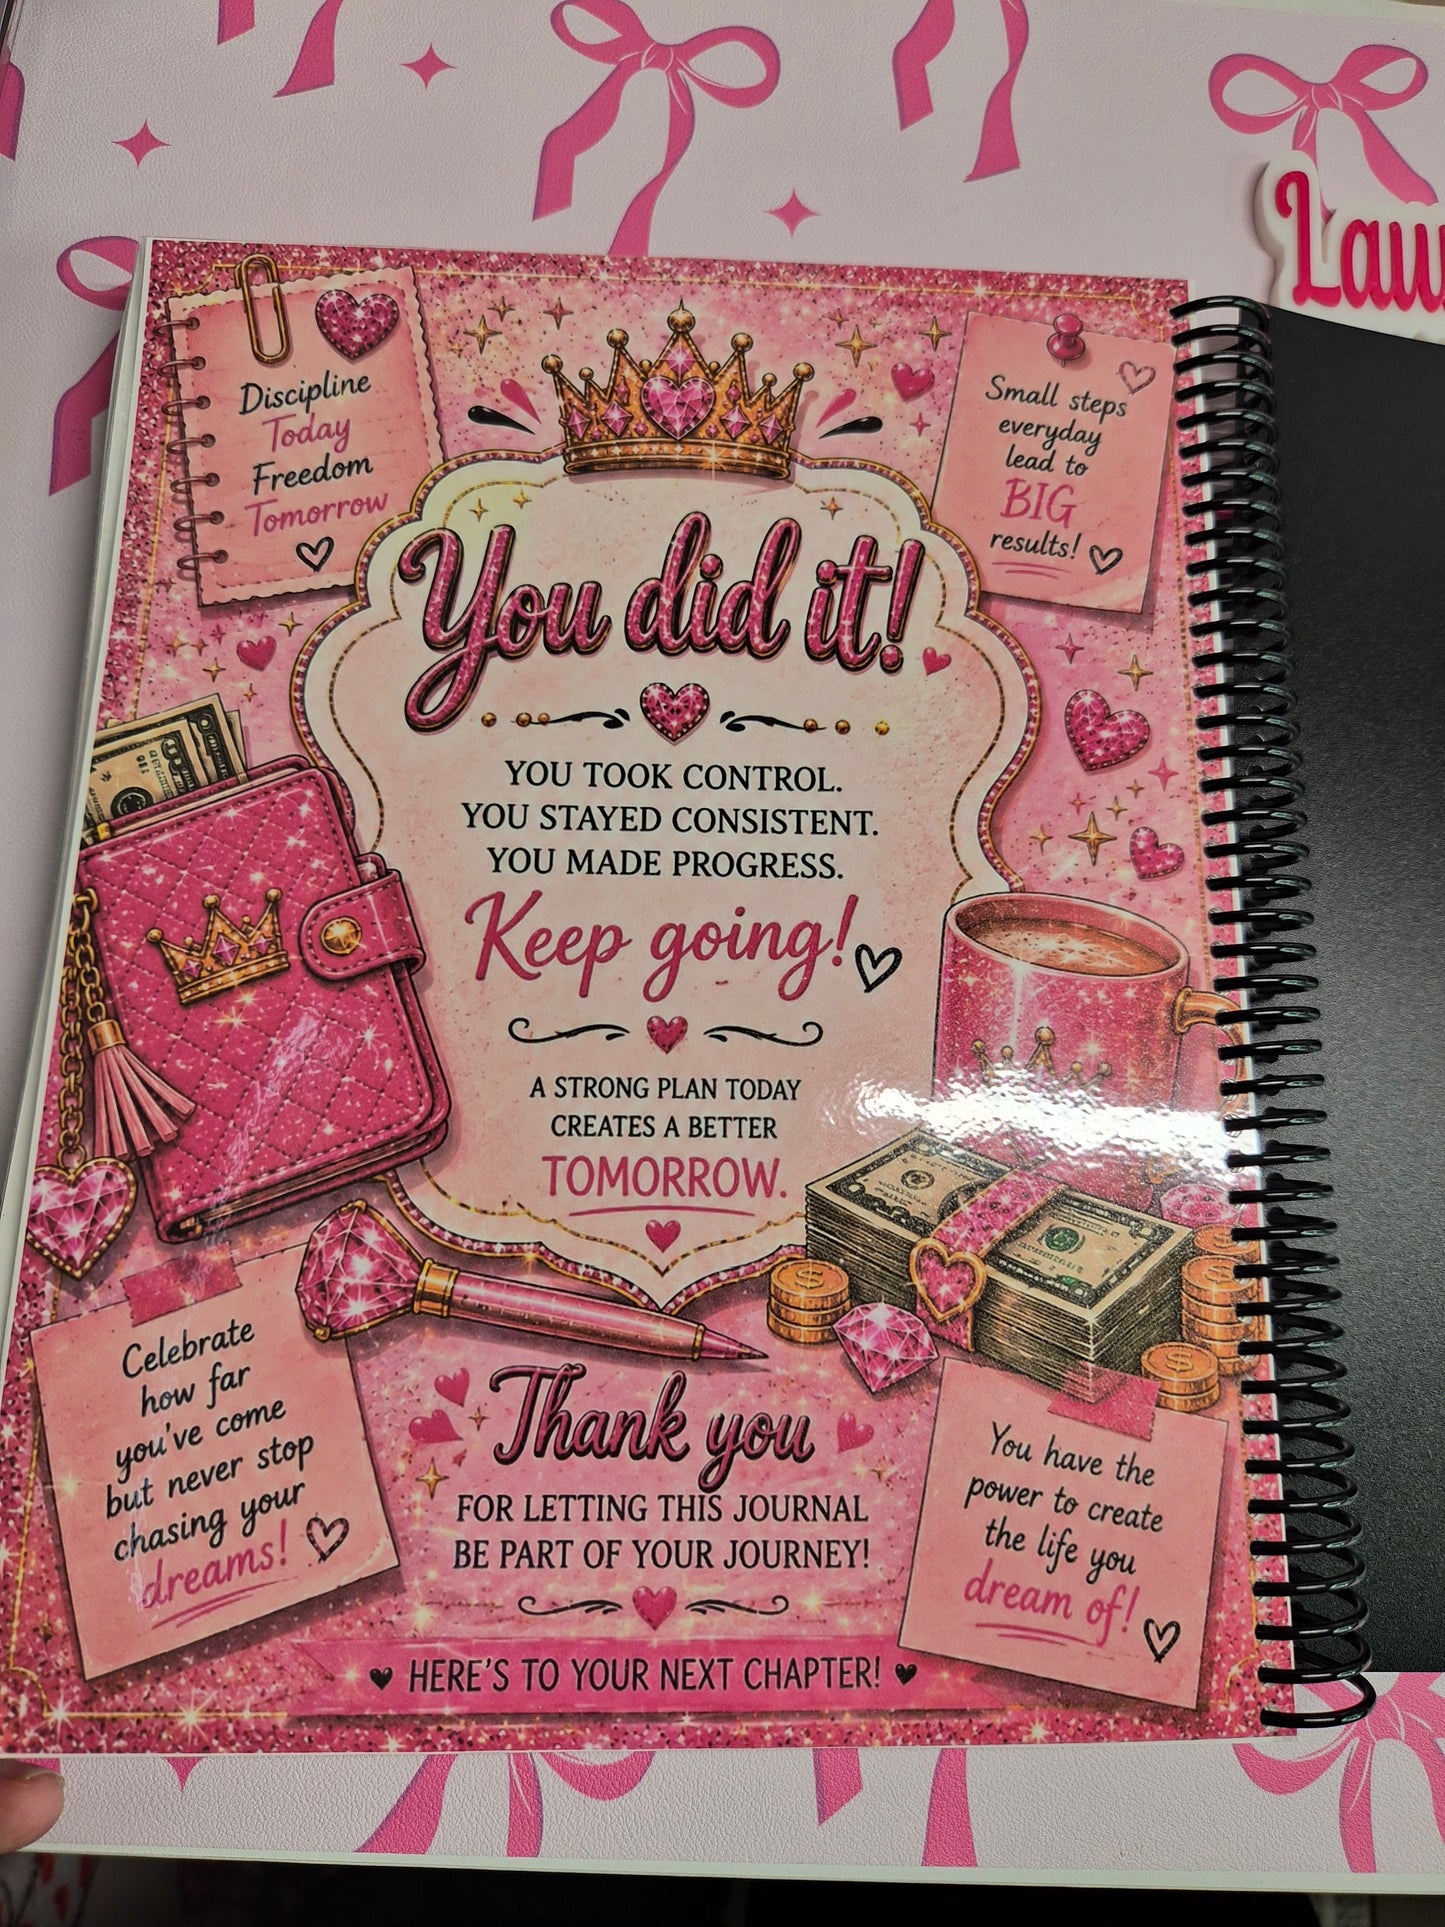 Discipline
Today
Freedom
Tomorrow
Small steps
everyday
lead to
BIG
results!
You did it!
YOU TOOK CONTROL.
YOU STAYED CONSISTENT.
YOU MADE PROGRESS.
Keep going!
A STRONG PLAN TODAY
CREATES A BETTER
TOMORROW.
Celebrate
how far
you've come
but never stop
chasing your
dreams!
Thank you
FOR LETTING THIS JOURNAL
BE PART OF YOUR JOURNEY!
You have the
power to create
the life you
dream of!
HERE'S TO YOUR NEXT CHAPTER!